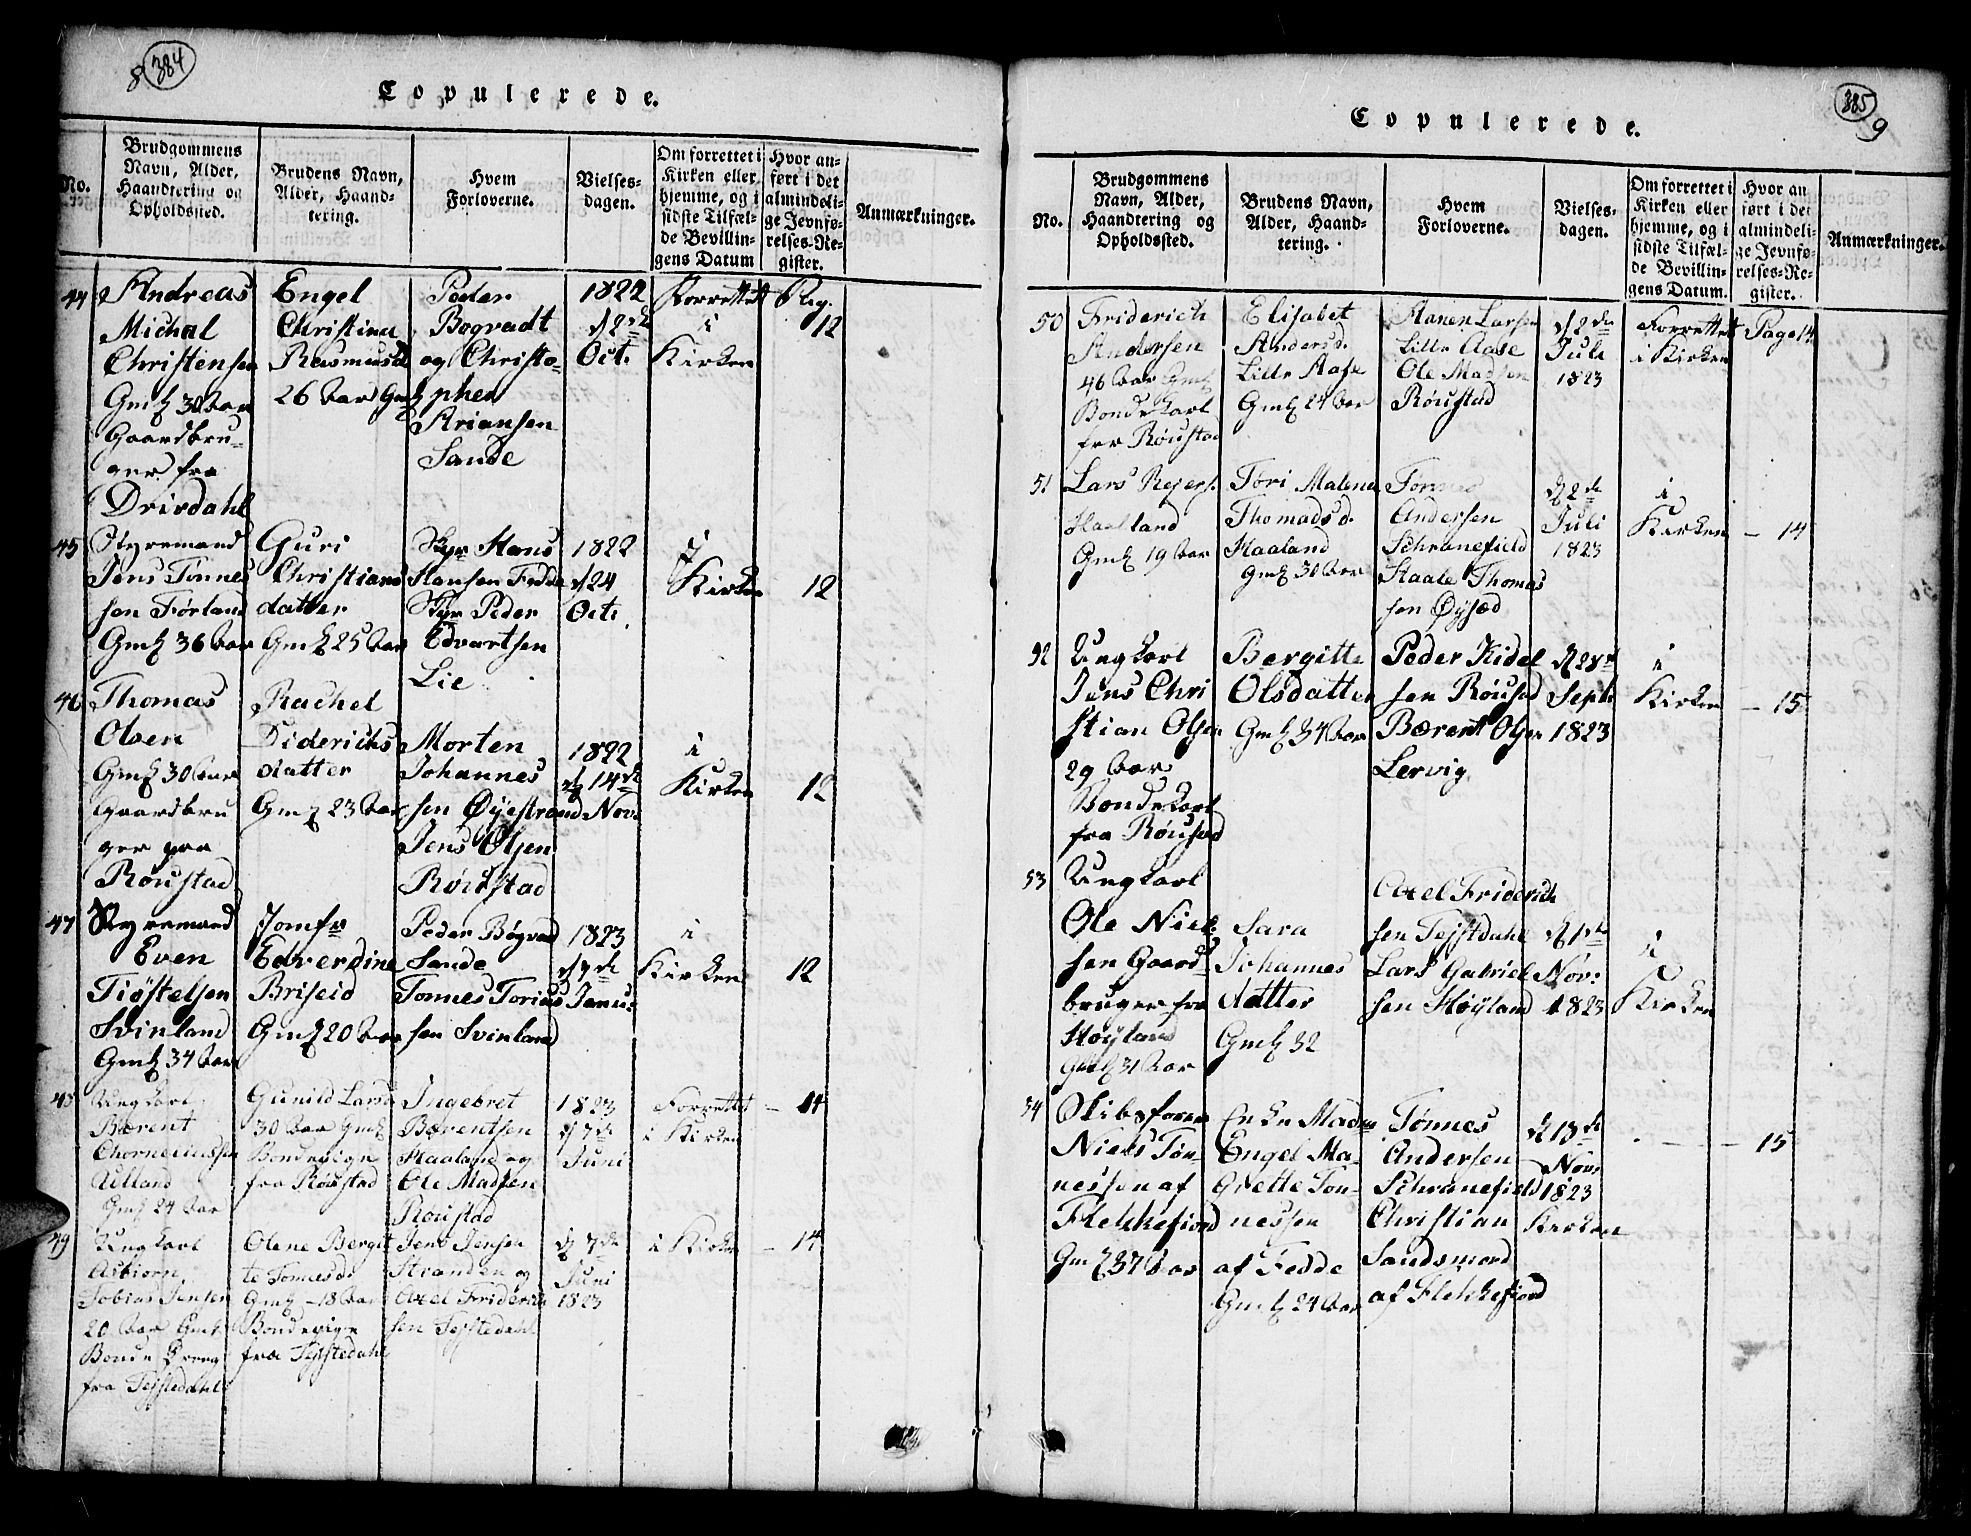 8 384
Copulerede.
No.
Brudgommens
Navn, Alder,
Haandtering og
Opholdssted.
Brudens Navn,
Alder, Haand-
tering.
Hvem
Forloverne.
Vielses-
dagen.
Om forrettet i
Kirken eller
hjemme, og i
sidste Tilfæl-
de Bevillin-
gens Datum
Hvor an-
ført i det
almindeli-
ge Jevnfø-
relses-Re-
gister.
Anmærkninger.
44
Andreas
Michal
Christensen
Gmlʒ 30 Aar
Gaardbru-
ger fra
Drivdahl
Engel
Christina
Rasmusd
26 Aar Gmlʒ
Peder
Bogvadt
og Christo-
pher
Ariansen
Sande
1822
d 2de
Oct.
Forrettet
i
Kirken
Reg.
12
45
Styremand
Jens Tønnes
sen Førland
Gmlʒ 36 Aar
Guri
Christians
datter
Gmlʒ 25 Aar
Skpr Hans
Hansen Fedde
Skpr Peder
Edvartsen
Lie
1822
d 24
Oct.
i
Kirken
12
46
Thomas
Olsen
Gmlʒ 30 Aar
Gaardbru
ger paa
Røustad
Rachel
Diderichs
datter
Gmlʒ 23 Aar
Morten
Johannes
sen Øyestrand
Jens Olsen
Røustad
1822
d 14de
Nov.
i
Kirken
12
47
Styremand
Even
Tiøstelsen
Svinland
Gmlʒ 34 Aar
Jomfr
Edverdine
Briseid
Gmlʒ 20 Aar
Peder Bøgvad
Sande
Tonnes Torias
sen Svinland
1823
d 9de
Janu:
i
Kirken
12
48
Ungkarl
Bærent
Chorneliussen
Ailland
Gmlʒ 24 Aar
Gunild Larsd
30 Aar Gmlʒ
Bondepige
fra Røustad
Ingebret
Bærentsen
Haaland og
Ole Madsen
Røustad
1823
d 7de
Juni
Forrettet
i Kirken
- 14
49
Ungkarl
Asbiørn
Tobias Jensen
20 Aar Gmlʒ
Bonde Dreng
fra Tejstedahl
Olene Bergit
te Tonnesd.
Gmlʒ - 18 Aar
Bondepige
fra Tejstedahl
Jens Jensen
Stranden og
Axel Friderich
sen Tejstedahl
d 7de
Juni
1823
i Kirken
- 14
385
9
Copulerede.
No.
Brudgommens
Navn, Alder,
Haandtering og
Opholdssted.
Brudens Navn,
Alder, Haand-
tering.
Hvem
Forloverne.
Vielses-
dagen.
Om forrettet i
Kirken eller
hjemme, og i
sidste Tilfæl-
de Bevillin-
gens Datum.
Hvor an
ført i det
almindeli-
ge Jevnfø-
relses-Re-
gister.
Anmærkninger.
50
Friderich
Andersen
46 Aar Gmlʒ
Bondekarl
fra Røustad
Elisabet
Andersd.
Lille Aase
Gmlʒ 24 Aar
Hanen Larsen
Lille Aase
Ole Madsen
Røustad
d 2den
Juli
1823
Forrettet
i Kirken
Page 14
51
Lars Rejers.
Haaland
Gmlʒ 19 Aar
Tori Malena
Thomadsd.
Haaland
Gmlʒ 30 Aar
Tonnes
Andersen
Schranefield
Staale Thomas
sen Øysæd
d 2de
Juli
1823
i
Kirken
- 14
52
Ungkarl
Jens Chri
stian Olsen
29 Aar
Bondekarl
fra Røusad
Bergitte
Olsdatter
Gmlʒ 34 Aar
Peder Kidel
sen Røusad
Bærent Olsen
Lervig
d 28d
Septr
1823
i
Kirken
- 15
53
Ungkarl
Ole Niel-
sen Gaard-
bruger fra
Høyland
Gmlʒ 31 Aar
Sara
Johannes
datter
Gmlʒ 32
Axel Friderich
sen Tejstdahl
Lars Gabriel
sen Høyland
d 1de
Nov:
1823
i
Kirken
54
Skibsforer
Niels Tøn-
nessen af
Flekkefiord
Gmlʒ 37 Aar
Enke Madm
Engel Ma-
grette Ton-
nessen
af Fedde
Gmlʒ 24 Aar
Tønnes
Andersen
Schranefield
Christian
Sandsmord
af Flekkefiord
d 13de
Nov.
1823
Kirken
- 15